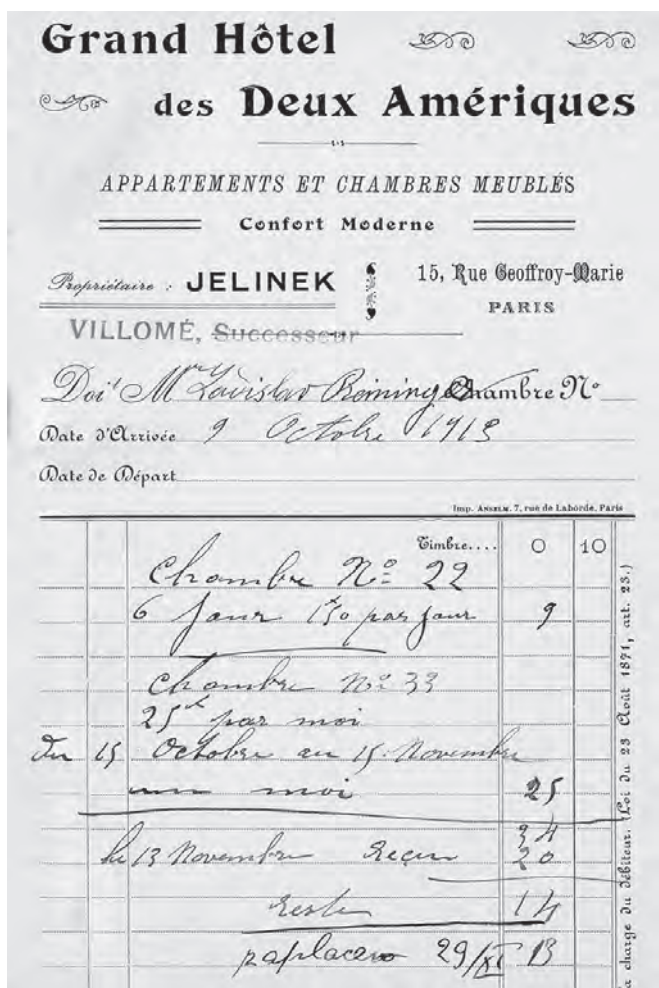 Grand Hôtel
des Deux Amériques
APPARTEMENTS ET CHAMBRES MEUBLÉS
Confort Moderne
Propriétaire : JELINEK
15, Rue Geoffroy-Marie
PARIS
VILLOMÉ, Successeur
Doit Mr Ladislav Chambre No
Date d'Arrivée 9 Octobre 1913
Date de Départ
Imp. ANSELM. 7, rue de Laborde, Paris
Timbre.... 0 10
Chambre No 22
6 Jour 1f50 par jour 9
Chambre No 33
25 par moi
Du 15 Octobre au 15 Novembre
un moi 25
34
le 13 Novembre Reçu 20
reste 14
zaplaceno 29/XI 13
a charge du débiteur. (Loi du 23 Août 1871, art. 23.)